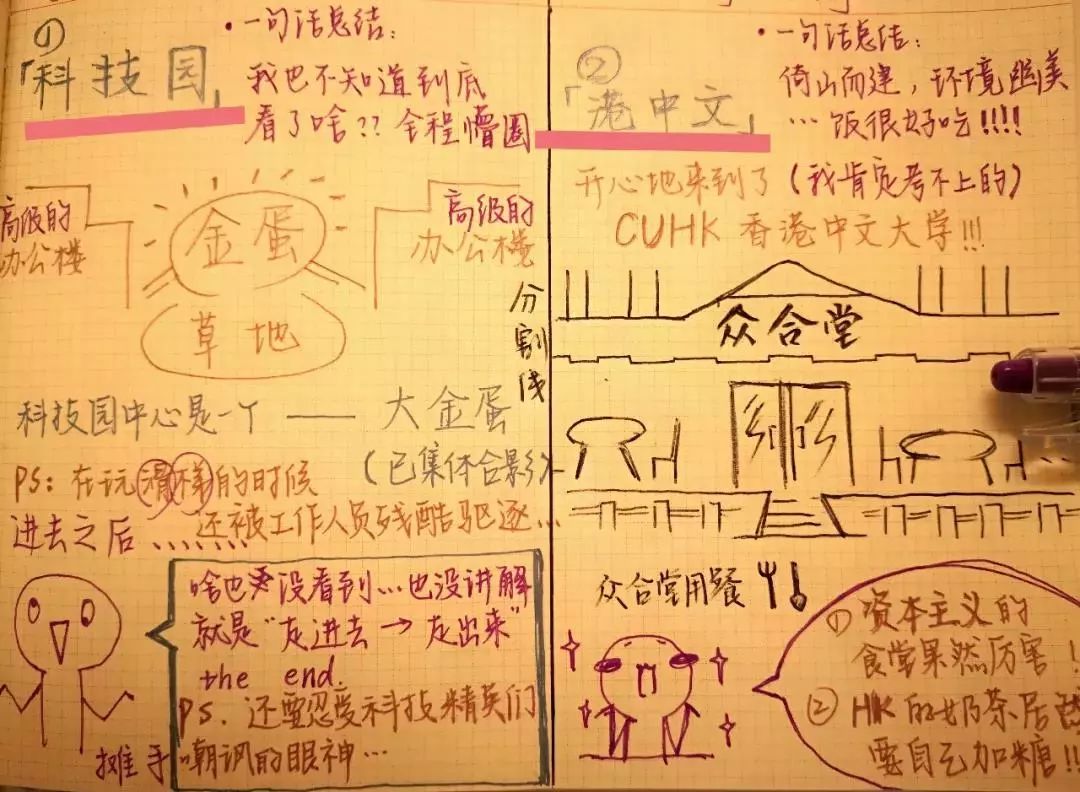 ①
「科技园」
•一句话总结：
我也不知道到底
看了啥？？全程懵圈
高级的
办公楼
金蛋
高级的
办公楼
草地
科技园中心是一个 —— 大金蛋
（已集体合影）
PS：在玩滑梯的时候
还被工作人员残酷驱逐…
进去之后……
啥也没看到…也没讲解
就是“走进去→走出来”
the end.
PS．还要忍受科技精英们
嘲讽的眼神…
摊手
分割线
②
「港中文」
•一句话总结：
倚山而建，环境幽美
…饭很好吃！！！！
开心地来到了（我肯定考不上的）
CUHK 香港中文大学！！！
众合堂
众合堂用餐
① 资本主义的
食堂果然厉害！
② HK的奶茶居然
要自己加糖！！